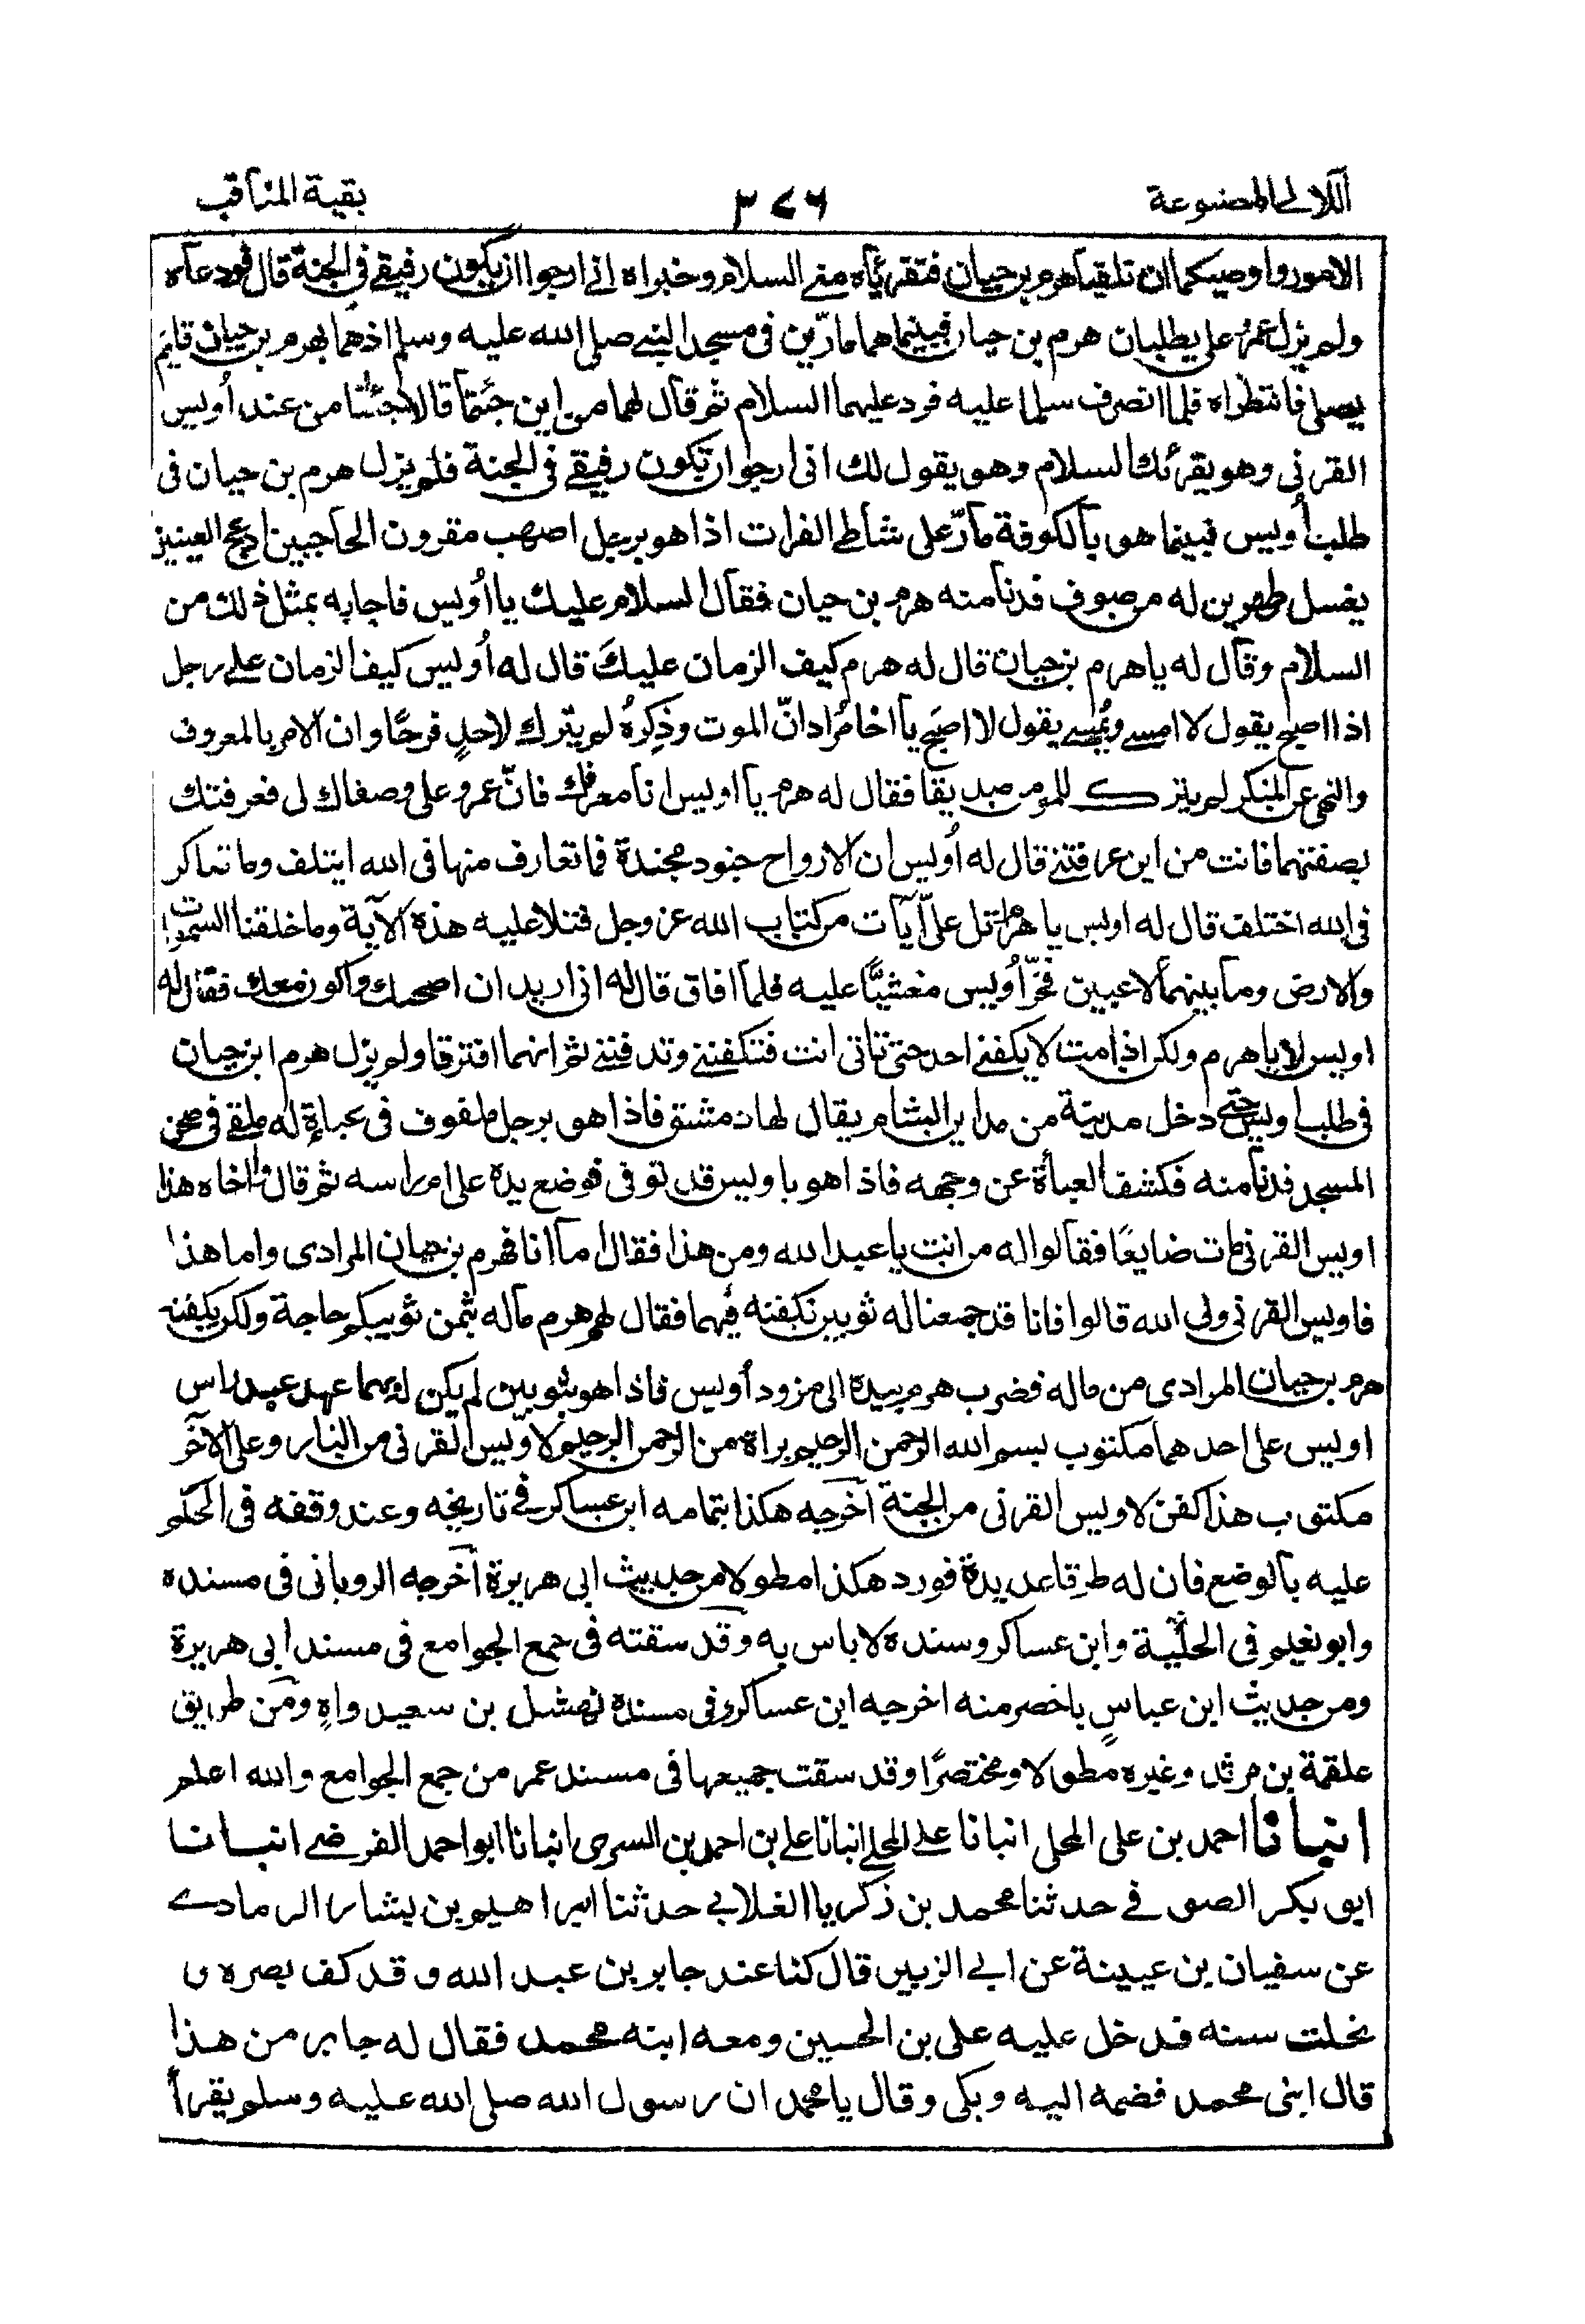 اللآلى المصنوعة
٣٧٦
بقية المناقب
الامور واوصيكما ان تلقيا هرم بن حيان فتقرئاه منے السلام وخبراه انے ارجوا ان يكون رفيقے فى الجنة قال فودعاه
ولم يزل عمر وعلى يطلبان هرم بن حيان فبينما هما مارّين فى مسجد النبے صلى الله عليه وسلم اذهما بهرم بن حيان قايم
يصلى فانتظراه فلما انصرف سلما عليه فرد عليهما السلام ثم قال لهما من اين جئتما قالا جئنا من عند أويس
القرنى وهو يقرئك السلام وهو يقول لك انى ارجوا ان تكون رفيقے فى الجنة فلم يزل هرم بن حيان فى
طلب أويس فبينما هو بالكوفة مارّ على شاطے الفرات اذا هو برجل اصهب مقرون الحاجبين ادعج العينين
يغسل طمرين له من صوف فدنا منه هرم بن حيان فقال السلام عليك يا أويس فاجابه بمثل ذلك من
السلام وقال له يا هرم بن حيان قال له هرم كيف الزمان عليكَ قال له أويس كيف الزمان علے رجل
اذا اصبح يقول لا امسے ويُمسے يقول لا اصبح يا اخا مُراد انّ الموت وذِكرهُ لم يترك لاحدٍ فرحًا وان الامر بالمعروف
والنهى عن المنكر لم يترك للمومن صديقا فقال له هرم يا اويس انا معرفك فانّ عمر وعلى وصفاك لى فعرفتك
بصفتهما فانت من اين عرفتنے قال له أويس ان الارواح جنود مجندة فما تعارف منها فى الله ايتلف وما تناكر
فى الله اختلف قال له اويس يا هرم اتل علىّ آيات من كتاب الله عز وجل فتلا عليه هذه الآية وما خلقنا السموات
والارض وما بينهما لاعبين فخرّ أويس مغشيًّا عليه فلما افاق قال له انى اريد ان اصحبك واكون معك فقال له
اويس لا يا هرم ولكن اذا مت لا يكفننے احد حتى تاتى انت فتكفننے وتدفننے ثم انهما افترقا ولم يزل هرم ابن حيان
فى طلب اويس حتے دخل مدينة من مداين الشام يقال لها دمشق فاذا هو برجل ملفوف فى عباءة له ملقے فى صحن
المسجد فدنا منه فكشف العباءة عن وجهه فاذا هو باويس قد توفى فوضع يده على ام راسه ثم قال وا اخاه هذا
اويس القرنى مات ضايعًا فقالوا له من انت يا عبد الله ومن هذا فقال اما انا فهرم بن حيان المرادى واما هذا
فاويس القرنى ولى الله قالوا فانا قد جمعنا له ثوبين نكفنه فيهما فقال لهم هرم ماله بثمن ثوبيكم حاجة ولكن يكفنه
هرم بن حيان المرادى من ماله فضرب هرم بيده الى مزود أويس فاذا هو بثوبين لم يكن له بهما عهد عند راس
اويس على احدهما مكتوب بسم الله الرحمن الرحيم براة من الرحمن الرحيم لاويس القرنى من النار وعلى الآخر
مكتوب هذا كفن لاويس القرنى من الجنة اخرجه هكذا بتمامه ابن عساكر فے تاريخه وعند وقفه فى الحكم
عليه بالوضع فان له طرقا عديدة فورد هكذا مطولا من حديث ابى هريرة اخرجه الرويانى فى مسنده
وابو نعيم فى الحلية وابن عساكر وسنده لا باس به وقد سقته فى جمع الجوامع فى مسند ابى هريرة
ومن حديث ابن عباسٍ باخصر منه اخرجه ابن عساكر وفى مسنده نهشل بن سعيد واهٍ ومن طريق
علقمة بن مرثد وغيره مطولا ومختصرًا وقد سقت جميعها فى مسند عمر من جمع الجوامع والله اعلم
انبانا احمد بن على المحلى انبانا علے المحلے انبانا علے بن احمد بن السرى انبانا ابو احمد الفرضے انبانا
ابو بكر الصوفے حدثنا محمد بن زكريا الغلابے حدثنا ابراهيم بن بشار الرمادے
عن سفيان بن عيينة عن ابے الزبير قال كنا عند جابر بن عبد الله وقد كف بصره و
نخلت سنه فدخل عليه على بن الحسين ومعه ابنه محمد فقال له جابر من هذا
قال ابنى محمد فضمه اليه وبكى وقال يا محمد ان رسول الله صلى الله عليه وسلم يقرأ